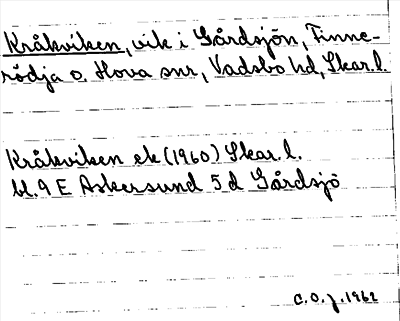 Kråkviken, vik i Gårdsjön, Finne-
rödja o. Hova snr, Vadsbo hd, Skar. l.
Kråkviken ek (1960) Skar. l.
bl. 9 E Askersund 5 d Gårdsjö
C. O. J. 1962